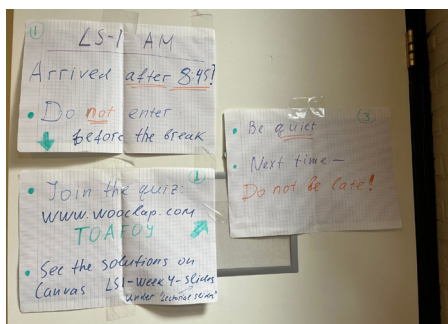 1
LS-1 AM
Arrived after 8:45?
• Do not enter
before the break
2
• Join the quiz:
www.wooclap.com
TOAFOY
• See the solutions on
Canvas LS1-week 4-slides
under "Lectorial slides"
3
• Be quiet
• Next time –
Do not be late!